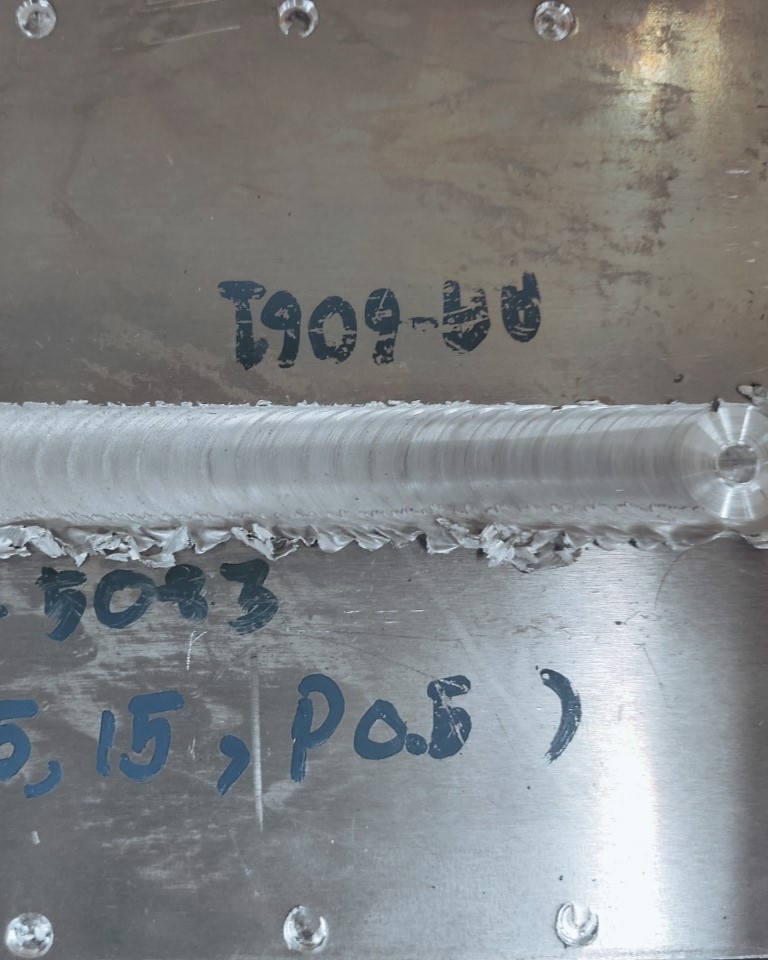 AA-6061
-5083
5, 15, P0.5)